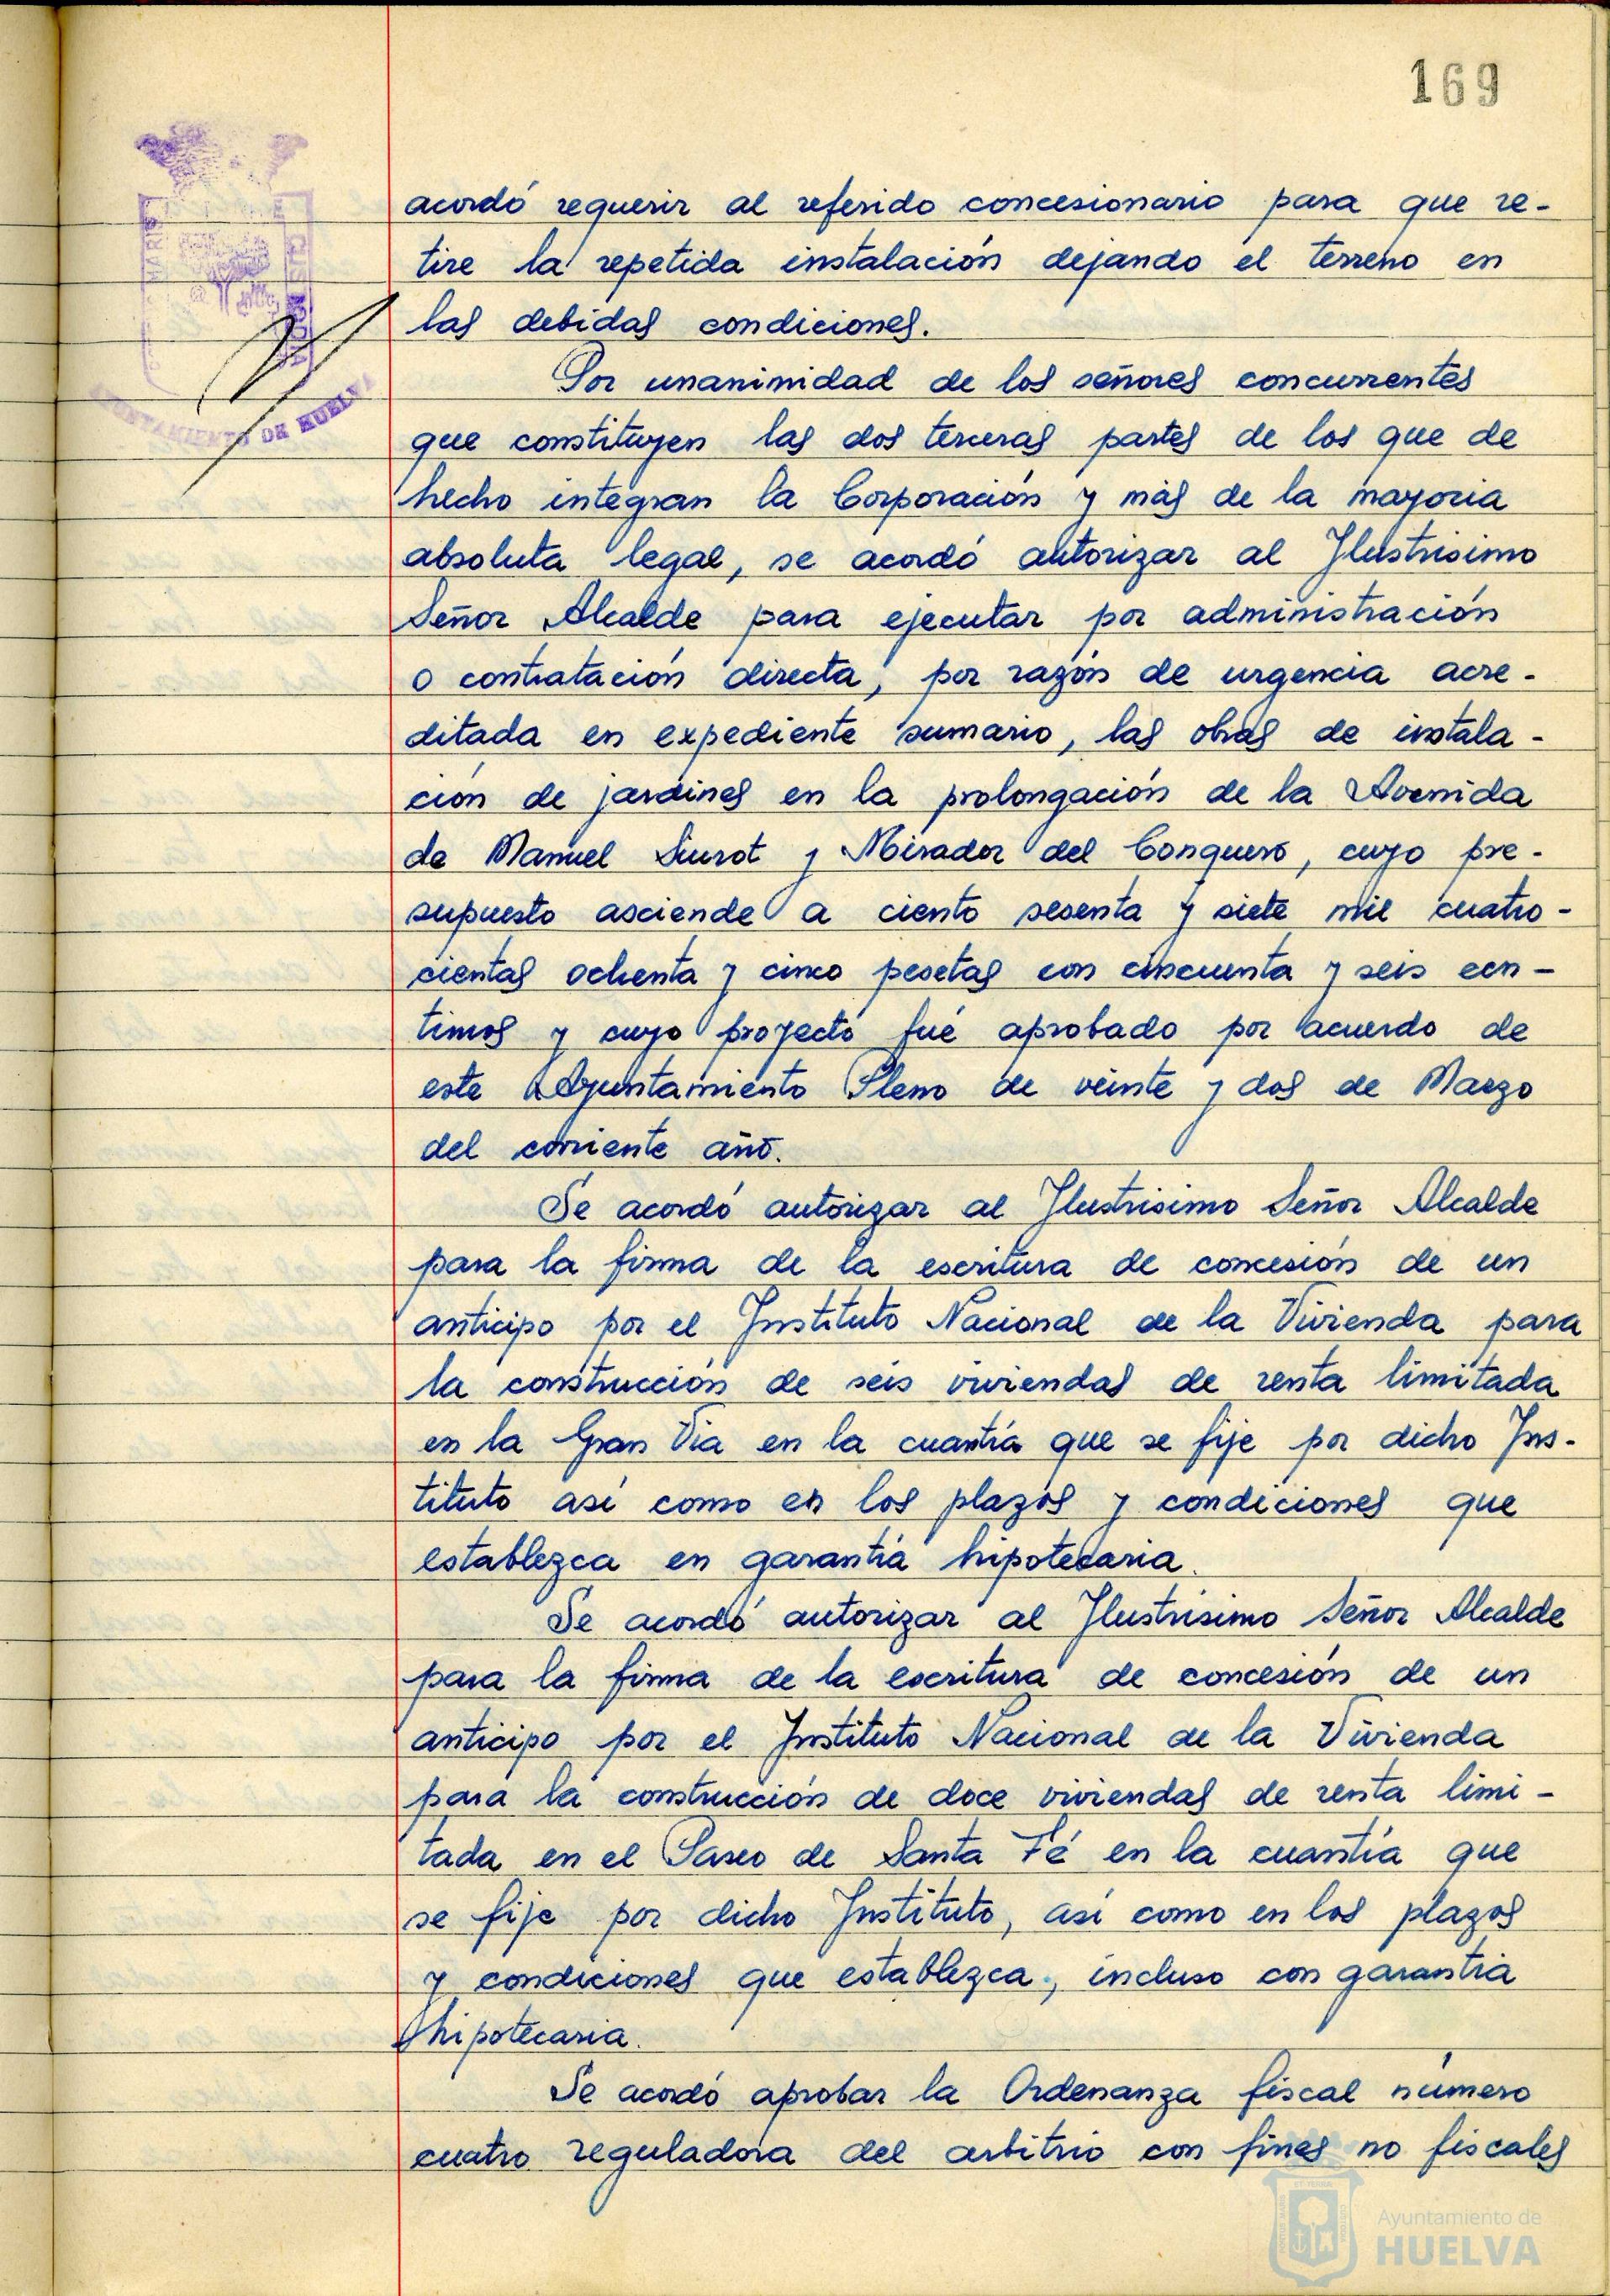 169
acordó requerir al referido concesionario para que re-
tire la repetida instalación dejando el terreno en
las debidas condiciones.
Por unanimidad de los señores concurrentes
que constituyen las dos terceras partes de los que de
hecho integran la Corporación y más de la mayoria
absoluta legal, se acordó autorizar al Ilustrisimo
Señor Alcalde para ejecutar por administración
o contratación directa, por razón de urgencia acre-
ditada en expediente sumario, las obras de instala-
ción de jardines en la prolongación de la Avenida
de Manuel Siurot y Mirador del Conquero, cuyo pre-
supuesto asciende a ciento sesenta y siete mil cuatro-
cientas ochenta y cinco pesetas con cincuenta y seis cen-
timos y cuyo proyecto fué aprobado por acuerdo de
este Ayuntamiento Pleno de veinte y dos de Marzo
del corriente año.
Se acordó autorizar al Ilustrisimo Señor Alcalde
para la firma de la escritura de concesión de un
anticipo por el Instituto Nacional de la Vivienda para
la construcción de seis viviendas de renta limitada
en la Gran Via en la cuantía que se fije por dicho Ins-
tituto asi como en los plazos y condiciones que
establezca en garantía hipotecaria.
Se acordó autorizar al Ilustrisimo Señor Alcalde
para la firma de la escritura de concesión de un
anticipo por el Instituto Nacional de la Vivienda
para la construcción de doce viviendas de renta limi-
tada en el Paseo de Santa Fé en la cuantía que
se fije por dicho Instituto, asi como en los plazos
y condiciones que establezca, incluso con garantia
hipotecaria.
Se acordó aprobar la Ordenanza fiscal número
cuatro reguladora del arbitrio con fines no fiscales
AYUNTAMIENTO DE HUELVA
MARIS
CUSTODIA
Ayuntamiento de
HUELVA